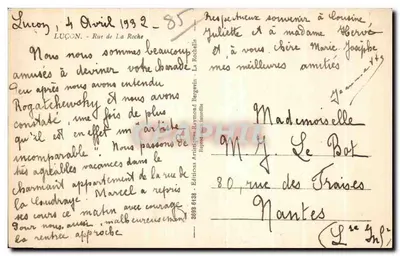 Luçon, 4 Avril 1932 - 85
LUÇON. - Rue de La Roche
Nous nous sommes beaucoup
amusés à deviner votre charade
Peu après nous avons entendu
et nous avons
constaté, une fois de plus
qu'il est en effet un artiste
incomparable. Nous passons de
très agréables vacances dans le
charmant appartement de la rue de
la Coudraye! Marcel a repris
ses cours ce matin avec courage
Pour nous aussi, malheureusement
la rentrée approche
Respectueux souvenir à Cousine,
Juliette et à madame Hervoë
et, à vous, chère Marie Josèphe
mes meilleures amitiés
Mademoiselle
M J Le Bot
80, rue des Fraises
Nantes
(Lre Infre)